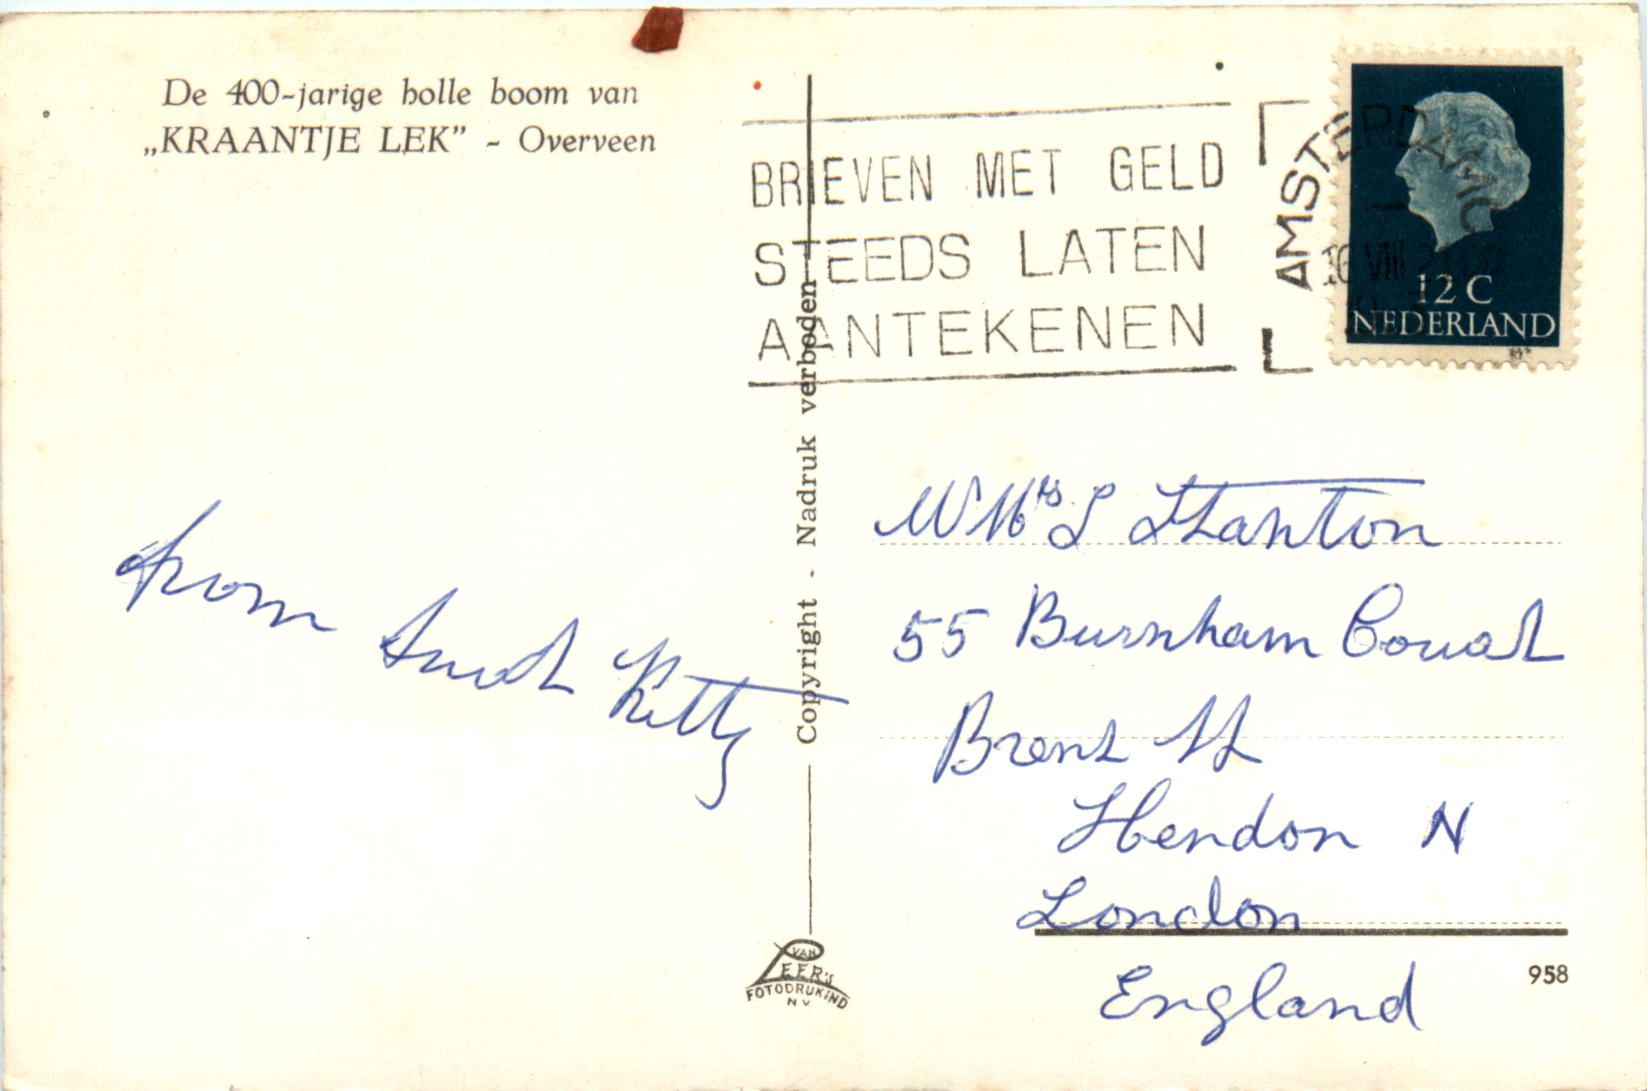 De 400-jarige holle boom van
„KRAANTJE LEK” - Overveen
BRIEVEN MET GELD
STEEDS LATEN
AANTEKENEN
AMSTERDAM
12 C
NEDERLAND
Copyright - Nadruk verboden
from Aunt Kitty
Mrs L Stanton
55 Burnham Court
Brent St
Hendon N
London
England
VAN
LEER'S
FOTODRUKIND
NV
958